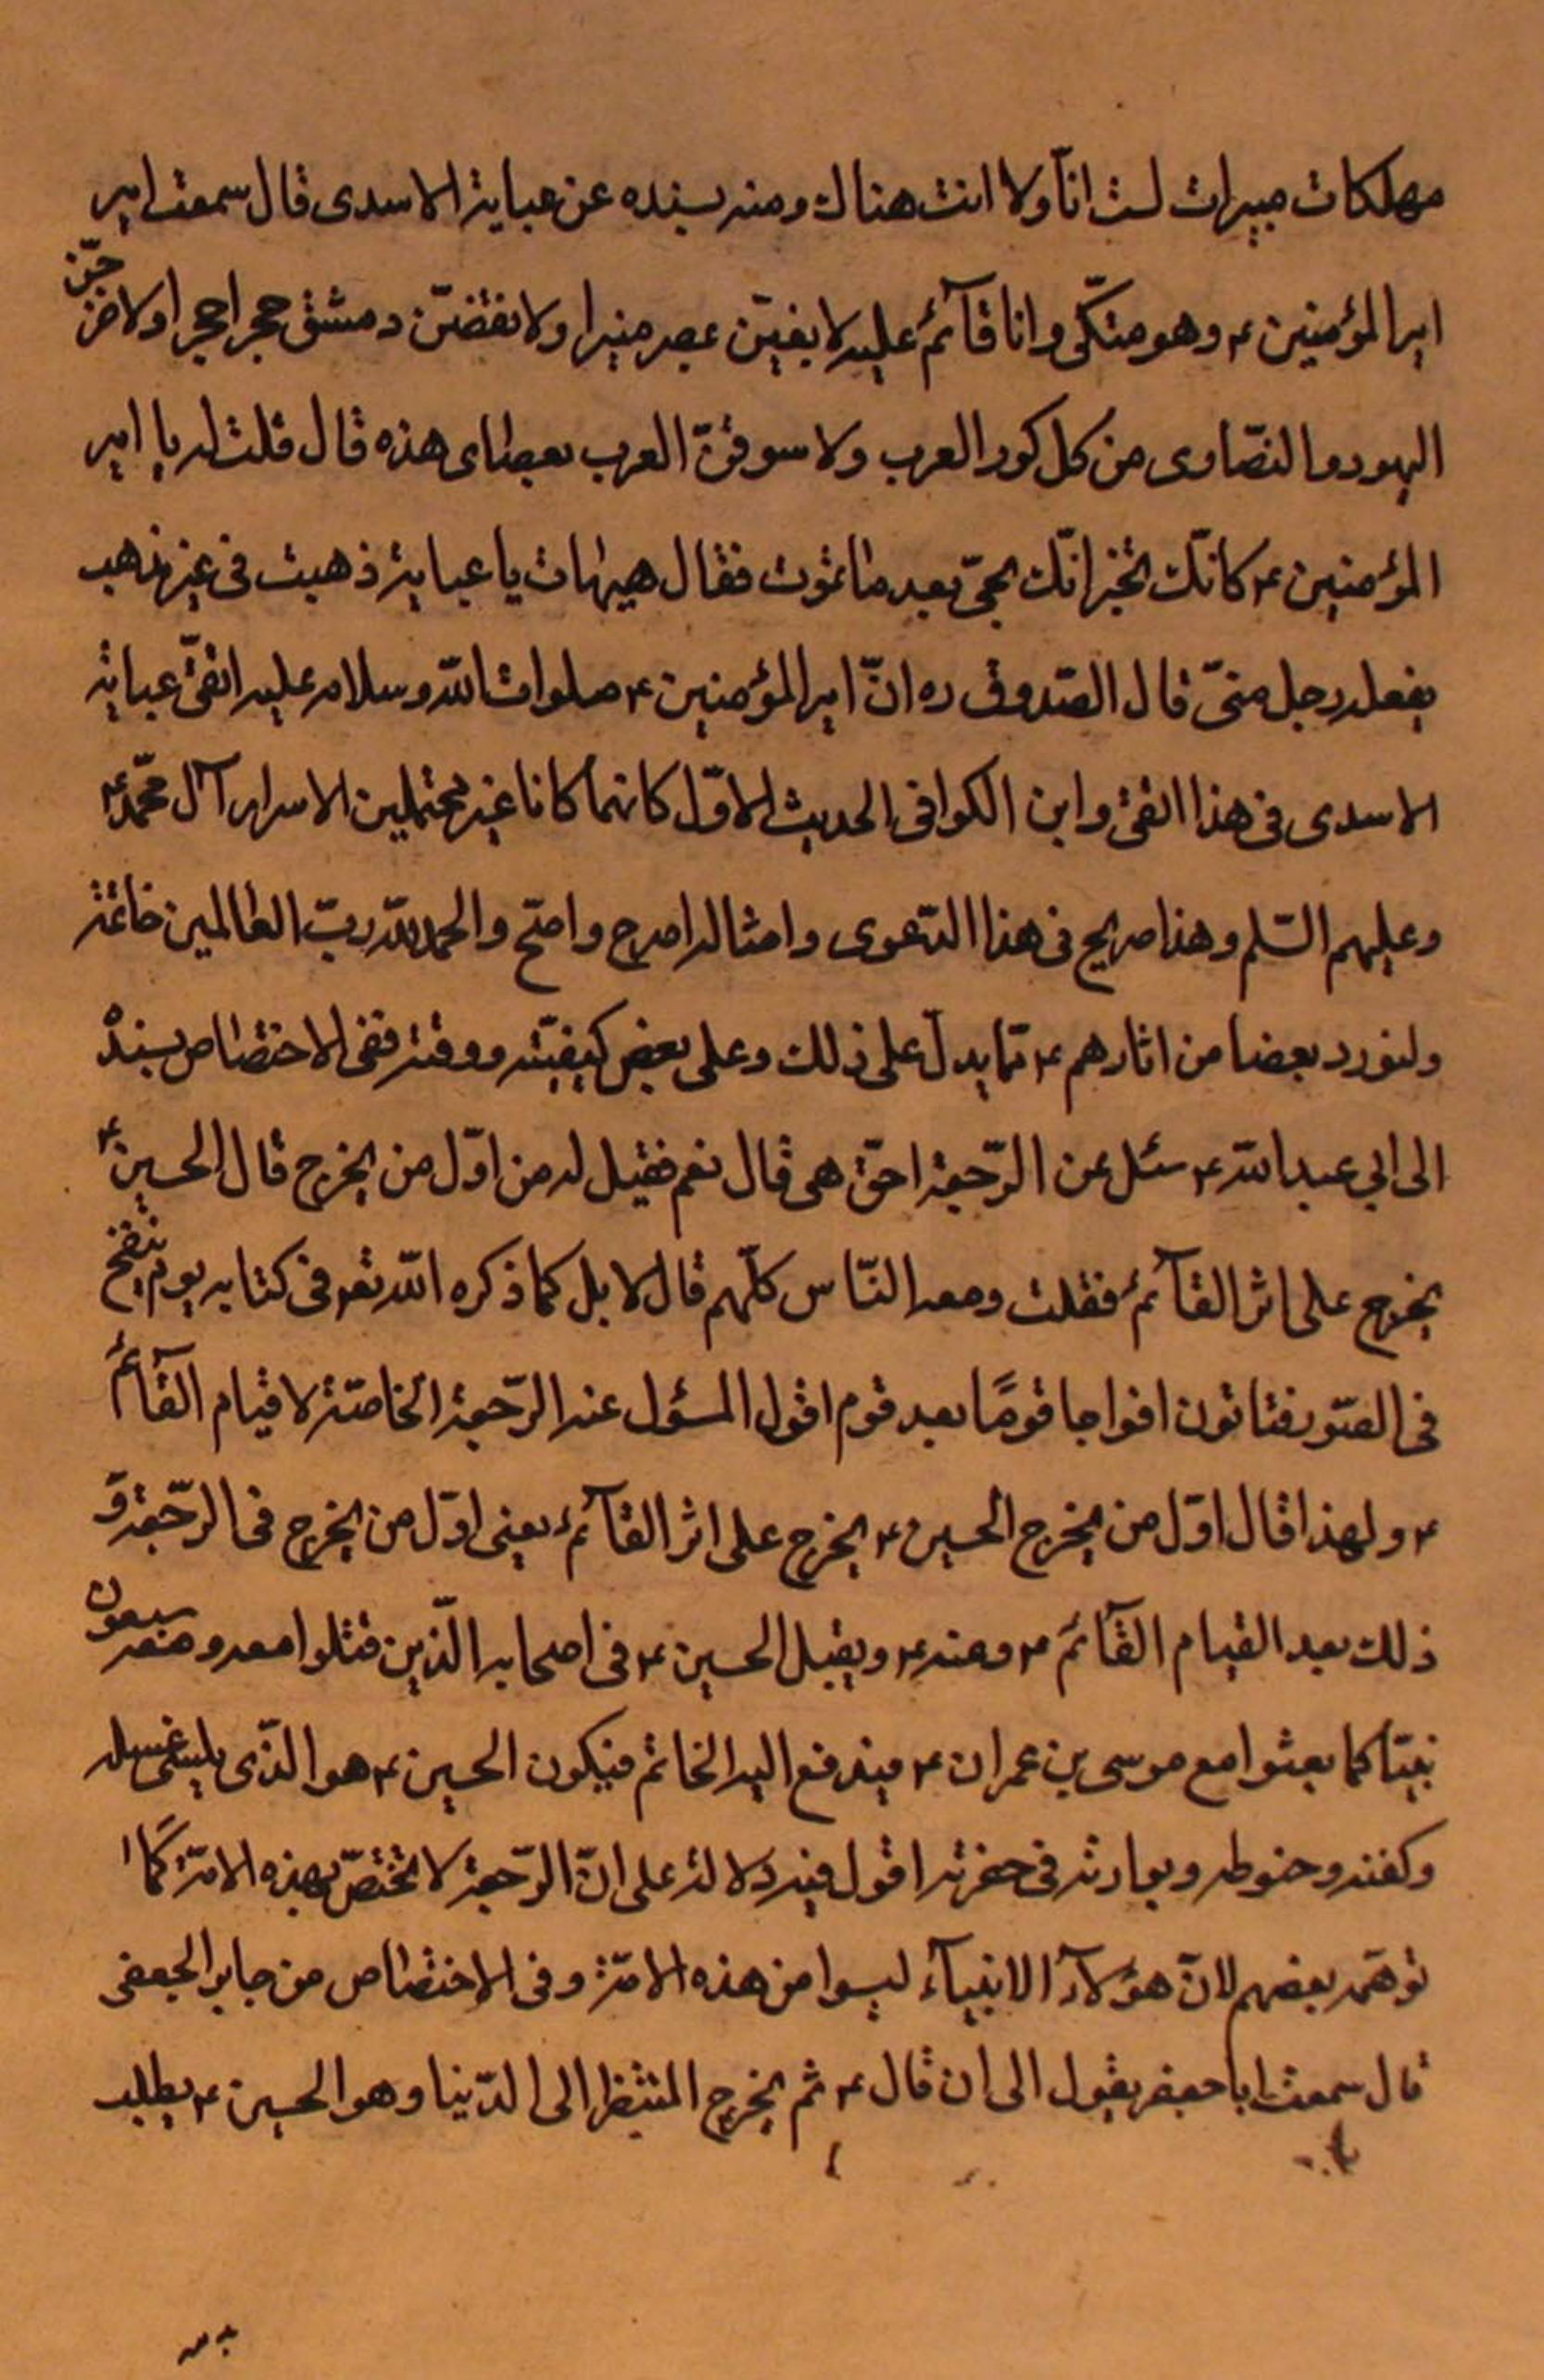 مهلكات مبيرات لست انا ولا انت هناك ومنه بسنده عن عباية الاسدى قال سمعت امير
امير المؤمنين ع وهو متكّى وانا قآئم عليه لابنينّ بمصر منيرا ولانقضنّ دمشق حجرا حجرا ولاخرجنّ
اليهود والنصّارى من كل كور العرب ولاسوقنّ العرب بعصاى هذه قال قلت له يا امير
المؤمنين ع كانّك تخبر انّك تحيّى بعد ما تموت فقال هيهات يا عباية ذهبت فى غير مذهب
يفعله رجل منّى قال الصّدوق ره انّ امير المؤمنين ع صلوات الله وسلامه عليه اتقىّ عباية
الاسدى فى هذا اتقى وابن الكوا فى الحديث الاوّل كانهما كانا غير محتملين الاسرار آل محمّد ع
وعليهم السّلم وهذا صريح فى هذا الدّعوى وامثاله اصرح واصحّ والحمد لله ربّ العالمين خاتمة
ولنورد بعضا من اثارهم ع ممّا يدلّ على ذلك وعلى بعض كيفيّته ووقته ففى الاختصاص بسنده
الى ابي عبد الله ع سئل عن الرّجعة احقّ هى قال نعم فقيل له من اوّل من يخرج قال الحسين ع
يخرج على اثر القآئم ع فقلت ومعه النّاس كلّهم قال لا بل كما ذكره الله تعو فى كتابه يوم ينفخ
فى الصّور فتاتون افواجا قومًا بعد قوم اقول المسؤل عنه الرّجعة الخاصّة لا قيام القآئم
ع ولهذا قال اوّل من يخرج الحسين ع يخرج على اثر القآئم ع يعنى اوّل من يخرج فى الرّجعة وَ
ذلك بعد القيام القآئم ع وعنه ع ويقبل الحسين ع فى اصحابه الّذين قتلوا معه ومعه سبعون
نبيّا كما بعثوا مع موسى بن عمران ع فيدفع اليه الخاتم فيكون الحسين ع هو الّذى يلى غسله
وكفنه وحنوطه ويوارثه فى حفرته اقول فيه دلالة على انّ الرّجعة لا تختصّ بهذه الامّة كما
توهّمه بعضهم لانّ هؤلآء الانبيآء ليسوا من هذه الامّة وفى الاختصاص من جابر الجعفى
قال سمعت ابا جعفر يقول الى ان قال ع ثم يخرج المنتظر الى الدّنيا وهو الحسين ع يطلب